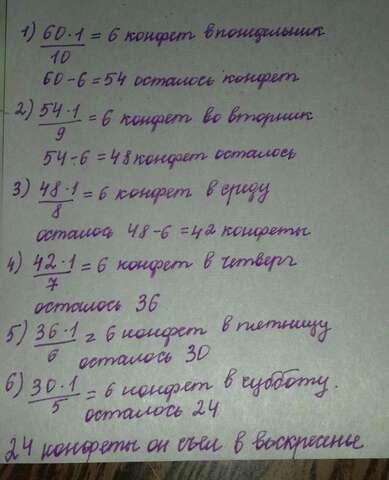 1) 60·1/10 = 6 конфет в понедельник
60-6=54 осталось конфет
2) 54·1/9 = 6 конфет во вторник
54-6=48 конфет осталось
3) 48·1/8 = 6 конфет в среду
осталось 48-6=42 конфеты
4) 42·1/7 = 6 конфет в четверг
осталось 36
5) 36·1/6 = 6 конфет в пятницу
осталось 30
6) 30·1/5 = 6 конфет в субботу.
осталось 24
24 конфеты он съел в воскресенье